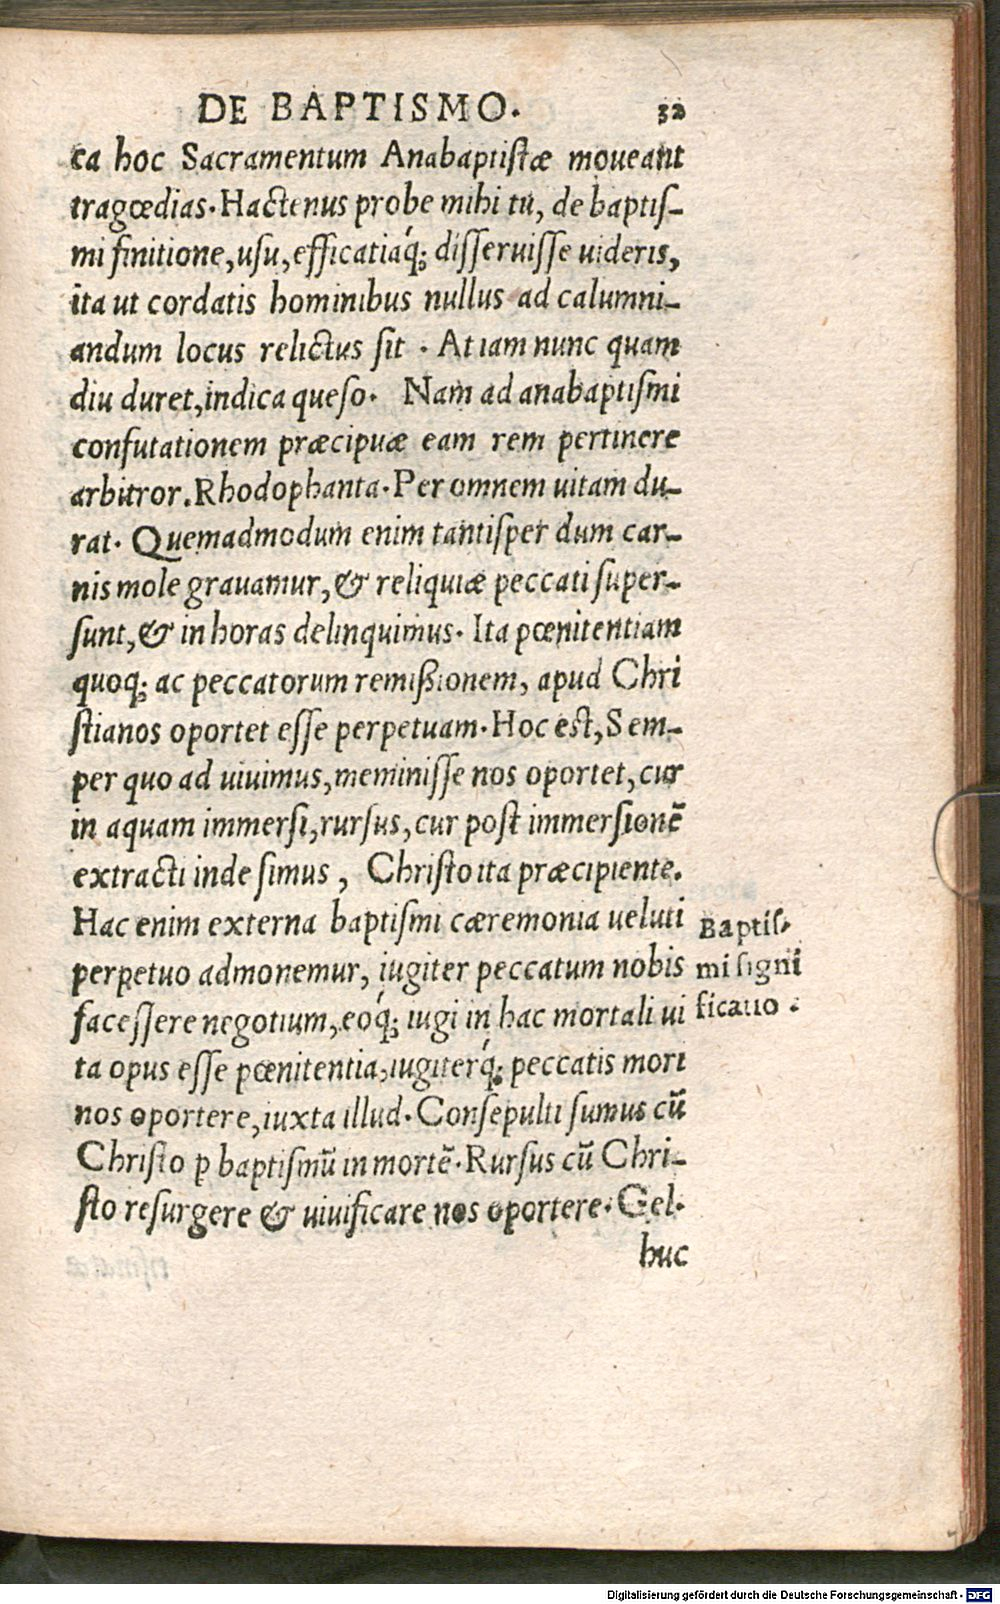 DE BAPTISMO. 32
ca hoc Sacramentum Anabaptistæ moveant
tragœdias. Hactenus probe mihi tu, de baptiſ-
mi finitione, uſu, efficatiaq́; diſſeruiſſe uideris,
ita ut cordatis hominibus nullus ad calumni-
andum locus relictus ſit . At iam nunc quam
diu duret, indica queſo. Nam ad anabaptiſmi
confutationem præcipuæ eam rem pertinere
arbitror. Rhodophanta. Per omnem uitam du-
rat. Quemadmodum enim tantiſper dum car-
nis mole gravamur, & reliquiæ peccati ſuper-
ſunt, & in horas delinquimus. Ita pœnitentiam
quoq; ac peccatorum remiſsionem, apud Chri
ſtianos oportet eſſe perpetuam. Hoc est, Sem-
per quo ad vivimus, meminiſſe nos oportet, cur
in aquam immerſi, rurſus, cur poſt immerſionē
extracti inde ſimus , Chriſto ita præcipiente.
Hac enim externa baptiſmi cæremonia ueluti
perpetuo admonemur, iugiter peccatum nobis
faceſſere negotium, eoq́; iugi in hac mortali ui
ta opus eſſe pœnitentia, iugiterq́; peccatis mori
nos oportere, iuxta illud. Conſepulti ſumus cū
Chriſto p baptiſmū in mortē. Rurſus cū Chri-
ſto reſurgere & vivificare nos oportere. Gel.
huc
Baptiſ-
mi ſigni
ficatio .
Digitalisierung gefördert durch die Deutsche Forschungsgemeinschaft - DFG